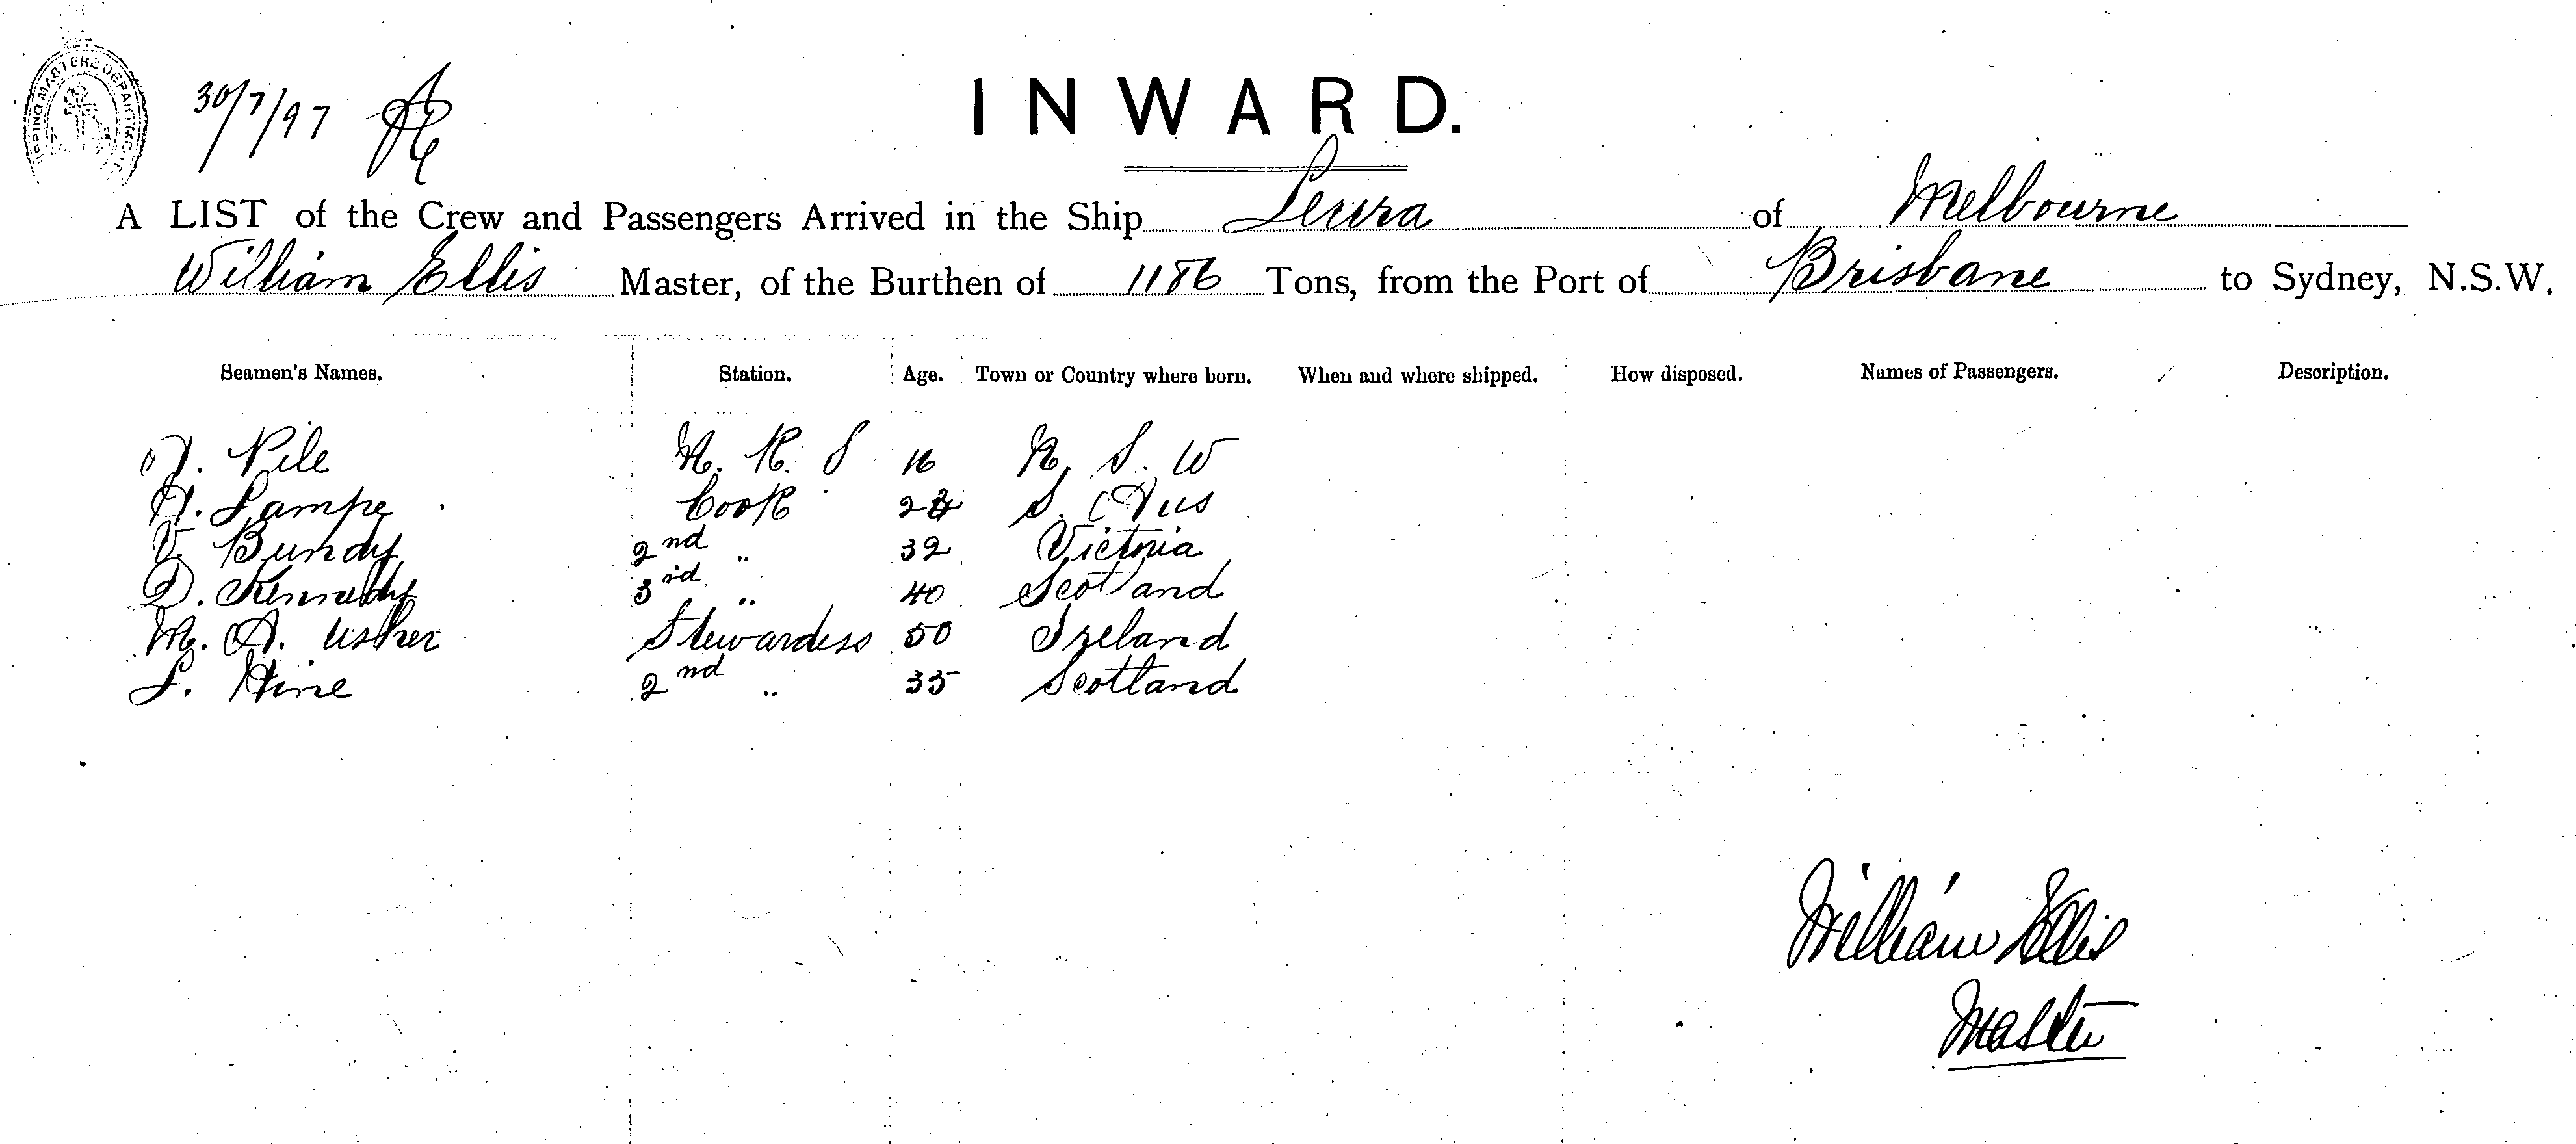 SHIPPING MASTERS DEPARTMENT
30/7/97
INWARD.
A LIST of the Crew and Passengers Arrived in the Ship Leura of Melbourne
William Ellis Master, of the Burthen of 1186 Tons, from the Port of Brisbane to Sydney, N.S.W.
Seamen's Names. Station. Age. Town or Country where born. When and where shipped. How disposed. Names of Passengers. Description.
J. Pile 16 N. S. W
H. Lampe Cook S. Aus
V. Bundy 2nd " 32 Victoria
D. Kennedy 3rd " 40 Scotland
M. A. Usher Stewardess 50 Ireland
L. Hine 2nd " 35 Scotland
William Ellis
Master